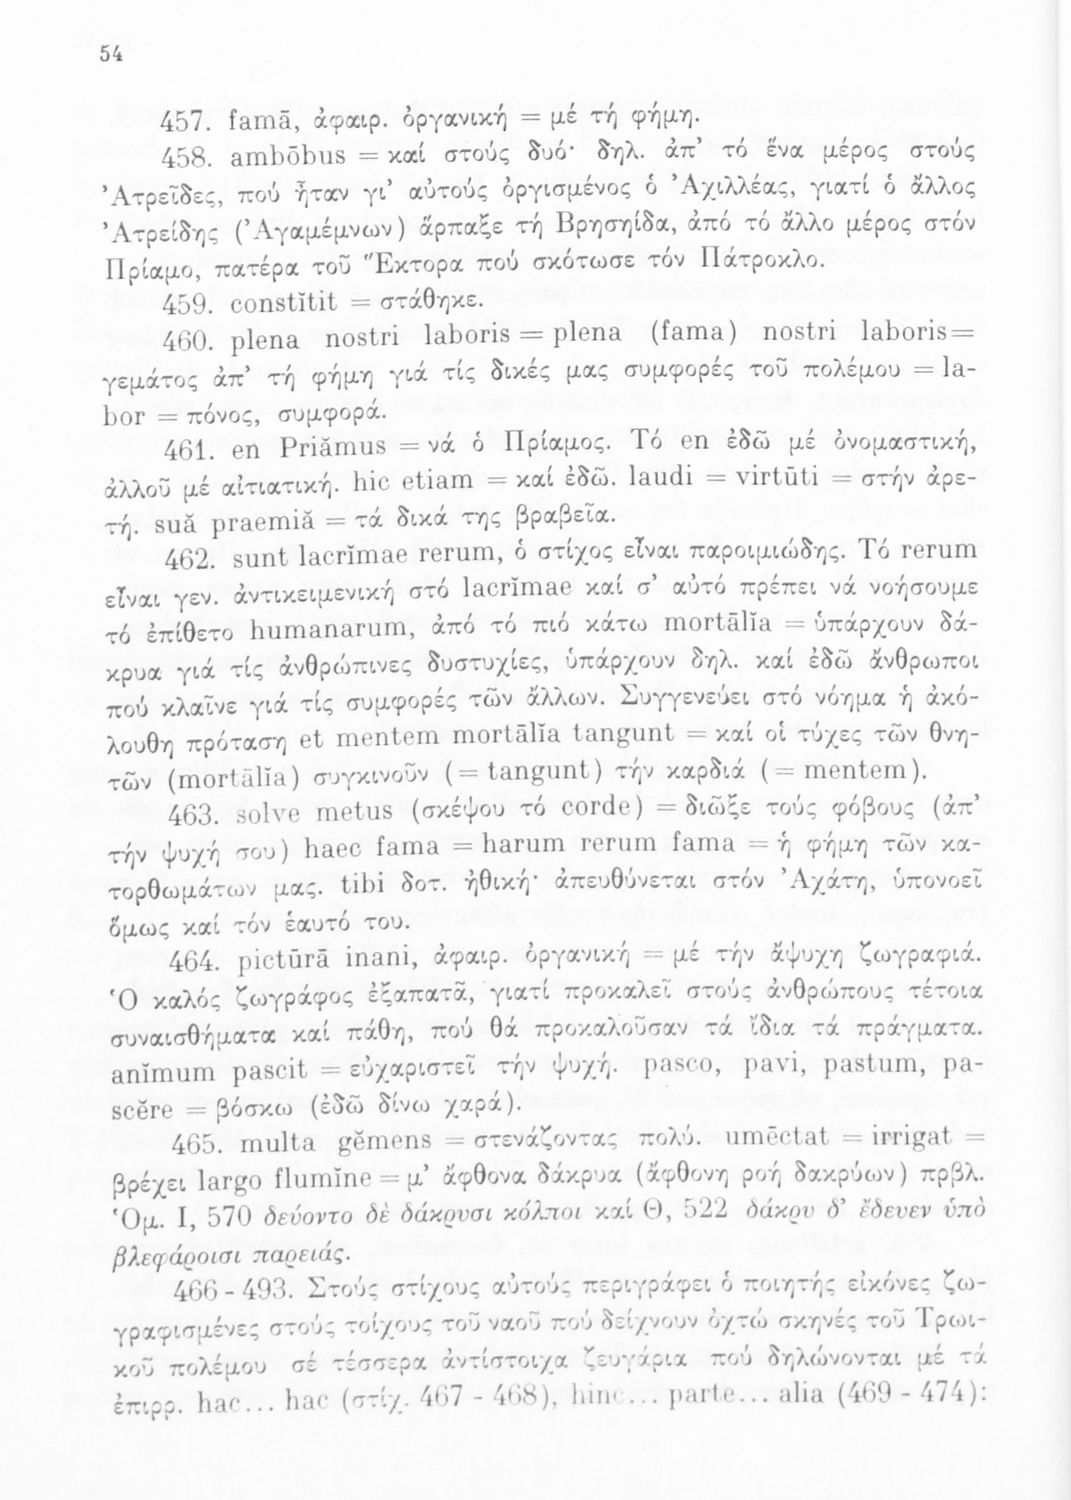 54
457. famā, ἀφαιρ. ὀργανική = μέ τή φήμη.
458. ambōbus = καί στούς δυό· δηλ. ἀπ’ τό ἕνα μέρος στούς
’Ατρεῖδες, πού ἦταν γι’ αὐτούς ὀργισμένος ὁ ’Αχιλλέας, γιατί ὁ ἄλλος
’Ατρείδης (’Αγαμέμνων) ἅρπαξε τή Βρησηίδα, ἀπό τό ἄλλο μέρος στόν
Πρίαμο, πατέρα τοῦ Ἕκτορα πού σκότωσε τόν Πάτροκλο.
459. constĭtit = στάθηκε.
460. plena nostri laboris = plena (fama) nostri laboris=
γεμάτος ἀπ’ τή φήμη γιά τίς δικές μας συμφορές τοῦ πολέμου = la-
bor = πόνος, συμφορά.
461. en Priămus = νά ὁ Πρίαμος. Τό en ἐδῶ μέ ὀνομαστική,
ἀλλοῦ μέ αἰτιατική. hic etiam = καί ἐδῶ. laudi = virtūti = στήν ἀρε-
τή. suă praemiă = τά δικά της βραβεῖα.
462. sunt lacrĭmae rerum, ὁ στίχος εἶναι παροιμιώδης. Τό rerum
εἶναι γεν. ἀντικειμενική στό lacrĭmae καί σ’ αὐτό πρέπει νά νοήσουμε
τό ἐπίθετο humanarum, ἀπό τό πιό κάτω mortālĭa = ὑπάρχουν δά-
κρυα γιά τίς ἀνθρώπινες δυστυχίες, ὑπάρχουν δηλ. καί ἐδῶ ἄνθρωποι
πού κλαῖνε γιά τίς συμφορές τῶν ἄλλων. Συγγενεύει στό νόημα ἡ ἀκό-
λουθη πρόταση et mentem mortālĭa tangunt = καί οἱ τύχες τῶν θνη-
τῶν (mortālĭa) συγκινοῦν (= tangunt) τήν καρδιά (= mentem).
463. solve metus (σκέψου τό corde) = διῶξε τούς φόβους (ἀπ’
τήν ψυχή σου) haec fama = harum rerum fama = ἡ φήμη τῶν κα-
τορθωμάτων μας. tibi δοτ. ἠθική· ἀπευθύνεται στόν ’Αχάτη, ὑπονοεῖ
ὅμως καί τόν ἑαυτό του.
464. pictūrā inani, ἀφαιρ. ὀργανική = μέ τήν ἄψυχη ζωγραφιά.
Ὁ καλός ζωγράφος ἐξαπατᾶ, γιατί προκαλεῖ στούς ἀνθρώπους τέτοια
συναισθήματα καί πάθη, πού θά προκαλοῦσαν τά ἴδια τά πράγματα.
anĭmum pascit = εὐχαριστεῖ τήν ψυχή. pasco, pavi, pastum, pa-
scĕre = βόσκω (ἐδῶ δίνω χαρά).
465. multa gĕmens = στενάζοντας πολύ. umēctat = irrigat =
βρέχει largo flumĭne = μ’ ἄφθονα δάκρυα (ἄφθονη ροή δακρύων) πρβλ.
Ὁμ. Ι, 570 δεύοντο δὲ δάκρυσι κόλποι καί Θ, 522 δάκρυ δ’ ἔδευεν ὑπὸ
βλεφάροισι παρειάς.
466 - 493. Στούς στίχους αὐτούς περιγράφει ὁ ποιητής εἰκόνες ζω-
γραφισμένες στούς τοίχους τοῦ ναοῦ πού δείχνουν ὀχτώ σκηνές τοῦ Τρωι-
κοῦ πολέμου σέ τέσσερα ἀντίστοιχα ζευγάρια πού δηλώνονται μέ τά
ἐπιρρ. hac... hac (στίχ. 467 - 468), hinc... parte... alia (469 - 474):